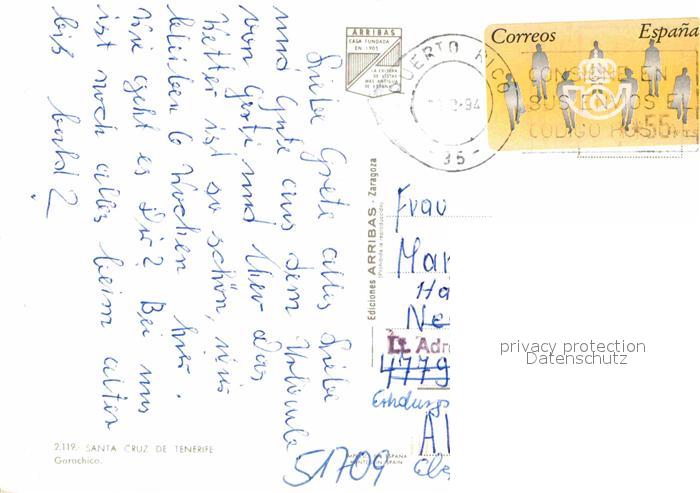 Liebe Grete alles Liebe
und Gute aus dem Urlaub
von Gerti und Uwe das
Wetter ist so schön, wir
bleiben 6 Wochen hier.
Wie geht es Dir? Bei uns
ist noch alles beim alten
bis bald?
ARRIBAS
CASA FUNDADA
EN 1905
LA EDITORA
DE VISTAS
MAS ANTIGUA
DE ESPAÑA
PUERTO RICO
94
35
Correos España
CONSIGNE EN
SUS ENVIOS EL
CODIGO POSTAL
55
Ediciones ARRIBAS - Zaragoza
(Prohibida la reproducción)
Frau
Mar
Ha
Ne
Lt. Adr
4779
Al
51709
privacy protection
Datenschutz
2.119. SANTA CRUZ DE TENERIFE
Garachico.